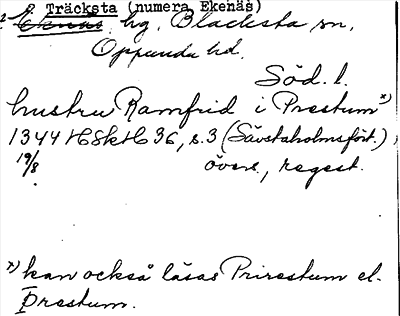 ? Träcksta (numera Ekenäs)
Ekenäs, hg, Blacksta sn,
Oppunda hd.
Söd. l.
hustru Ramfrid i Prestum x)
1344 HSkH 36, s.3 (Sävstaholmsfört.),
19/8 övers., regest.
x) kan också läsas Prirestum el.
Prestum.